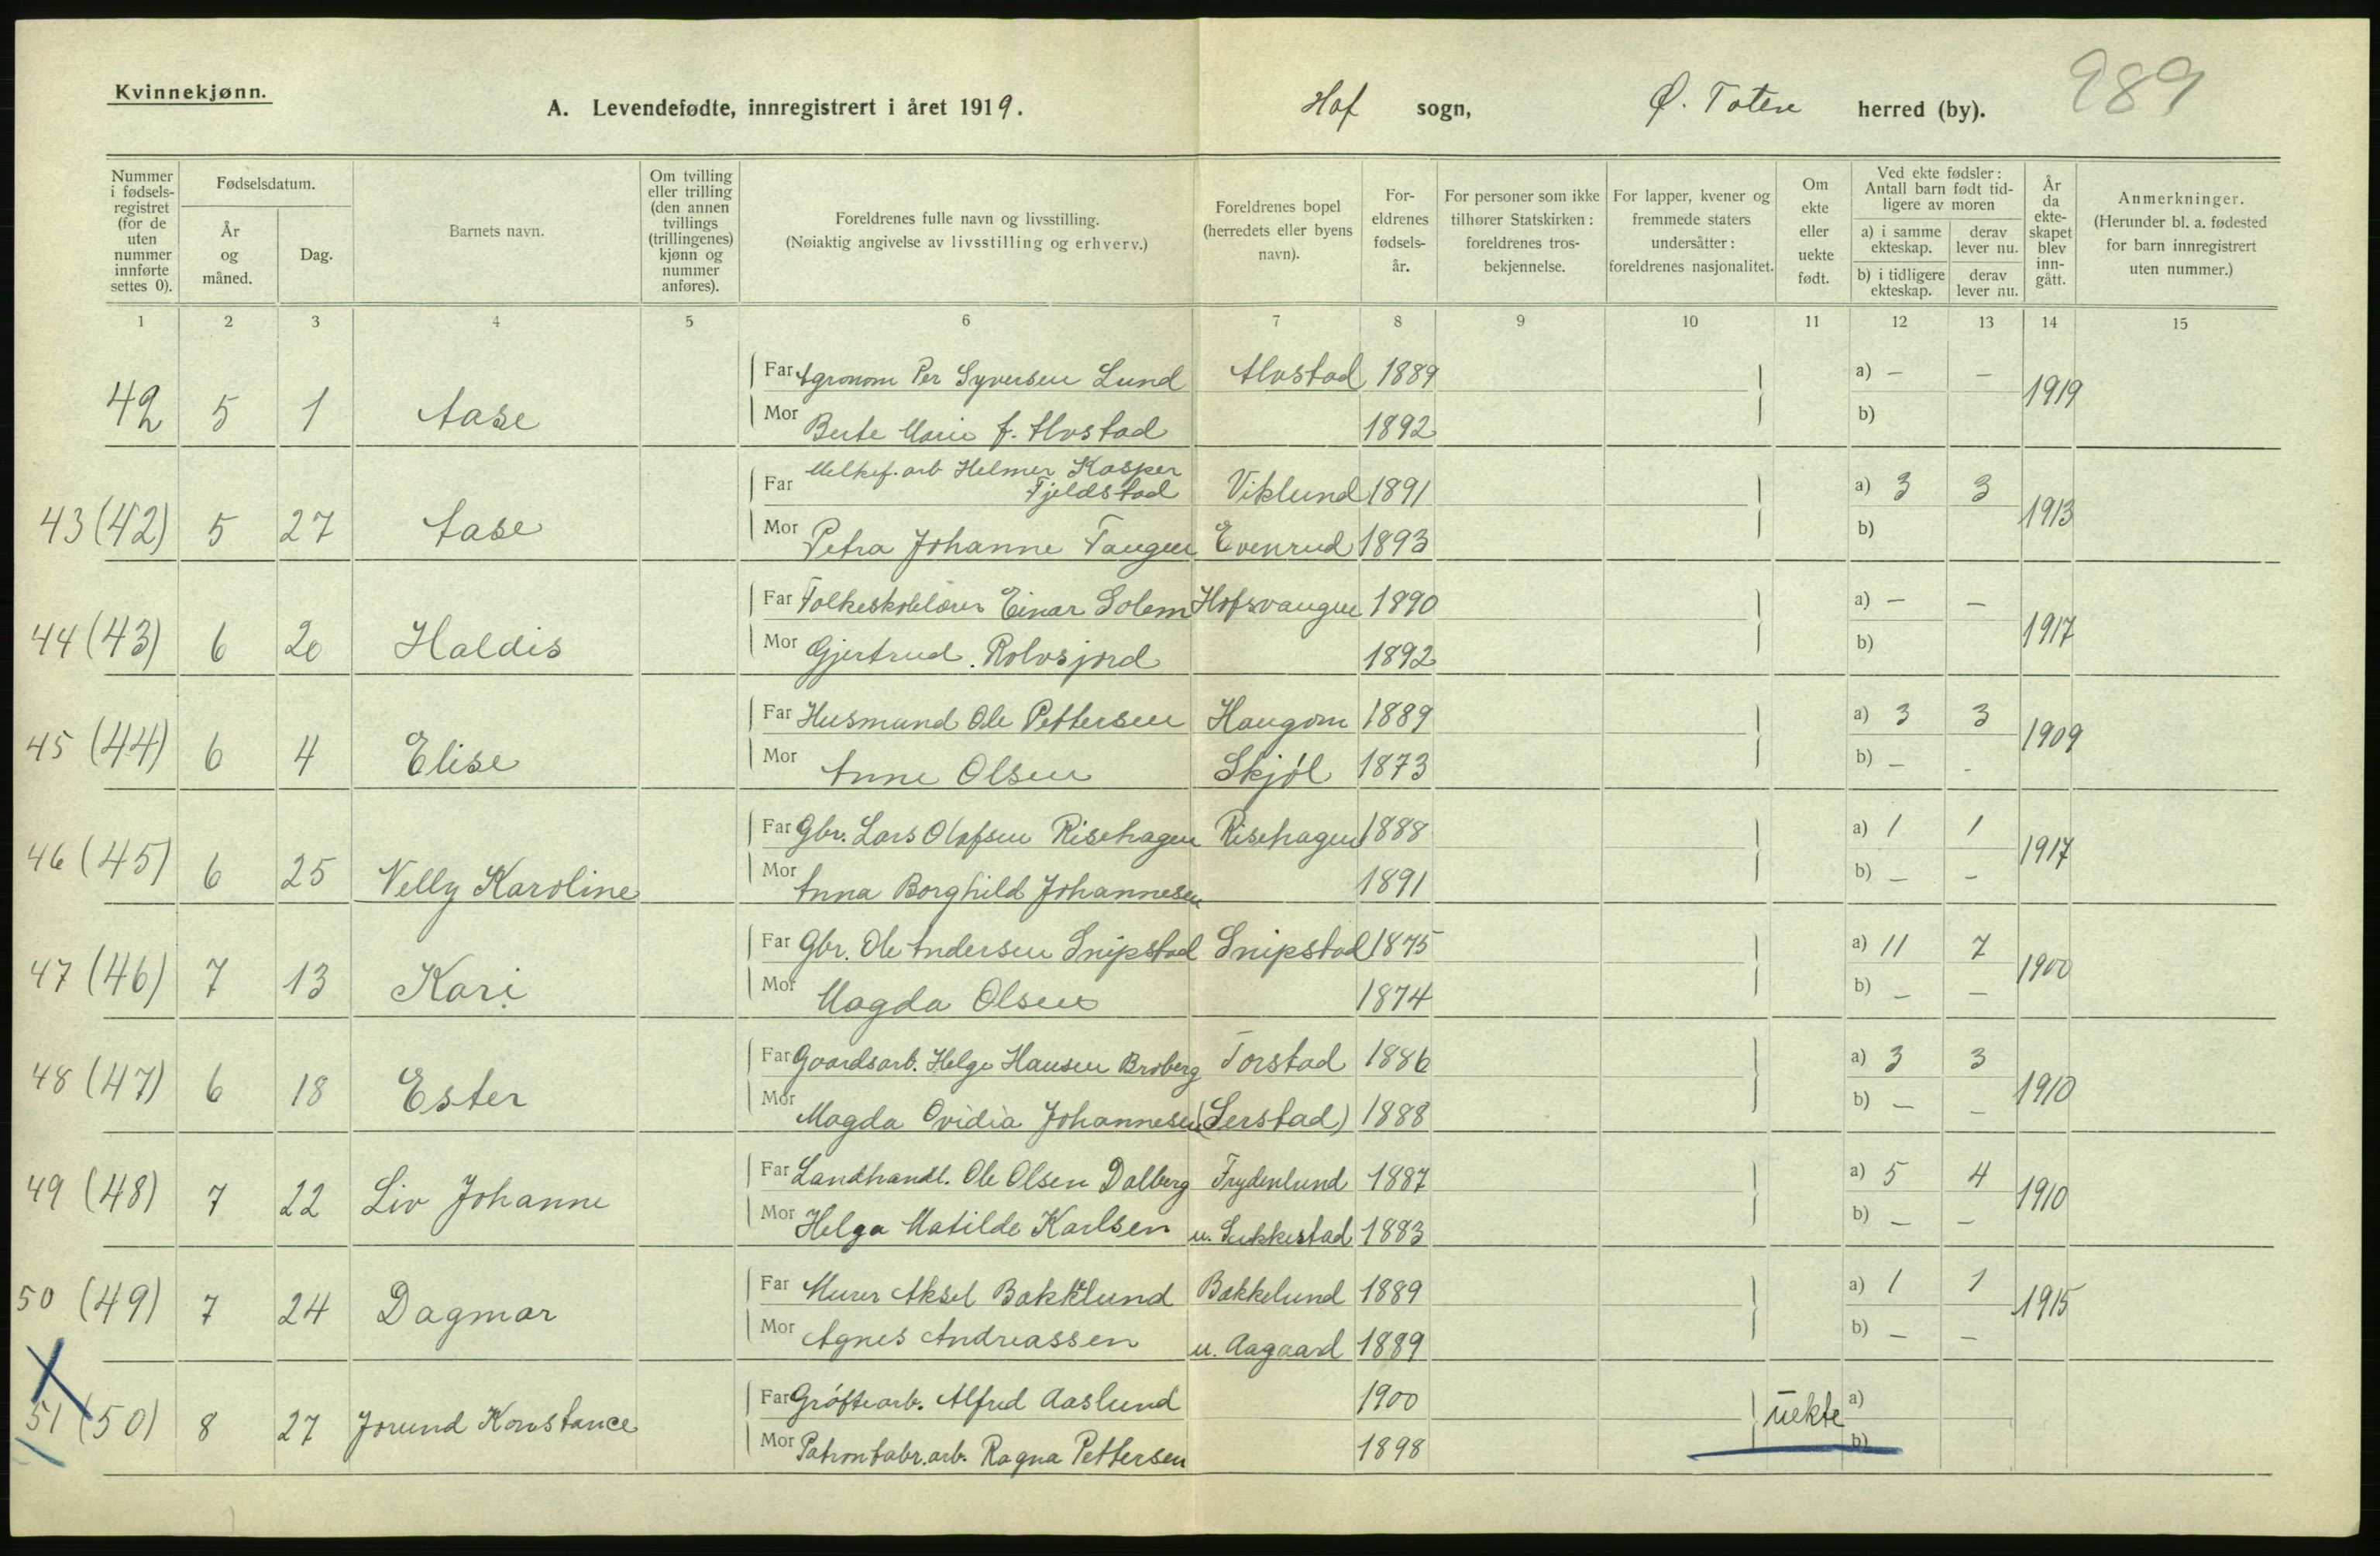 Kvinnekjønn.
A. Levendefødte, innregistrert i året 1919.
Hof sogn,
Ø. Toten herred (by).
289
Nummer i fødsels-registret (for de uten nummer innførte settes 0).
Fødselsdatum.
År og måned.
Dag.
Barnets navn.
Om tvilling eller trilling (den annen tvillings (trillingenes) kjønn og nummer anføres).
Foreldrenes fulle navn og livsstilling.
(Nøiaktig angivelse av livsstilling og erhverv.)
Foreldrenes bopel (herredets eller byens navn).
For-eldrenes fødsels-år.
For personer som ikke tilhører Statskirken: foreldrenes tros-bekjennelse.
For lapper, kvener og fremmede staters undersåtter: foreldrenes nasjonalitet.
Om ekte eller uekte født.
Ved ekte fødsler: Antall barn født tid-ligere av moren
a) i samme ekteskap.
derav lever nu.
b) i tidligere ekteskap.
derav lever nu.
År da ekte-skapet blev inn-gått.
Anmerkninger.
(Herunder bl. a. fødested for barn innregistrert uten nummer.)
1 2 3 4 5 6 7 8 9 10 11 12 13 14 15
Far Agronom Per Syversen Lund Alvstad 1889 a) — —
42 5 1 Aase 1919
Mor Berte Marie f. Alvstad 1892 b)
Far Melkef. arb Helmer Kasper
Fjeldstad Viklund 1891 a) 3 3
43 (42) 5 27 Aase 1913
Mor Petra Johanne Taugen Evenrud 1893 b)
Far Folkeskolelærer Einar Solem Hofsvangen 1890 a) — —
44 (43) 6 20 Haldis 1917
Mor Gjertrud Rolvsjord 1892 b)
Far Husmand Ole Pettersen Haugom 1889 a) 3 3
45 (44) 6 4 Elise 1909
Mor Anne Olsen Skjøl 1873 b) — -
Far Gbr. Lars Olafsen Risehagen Risehagen 1888 a) 1 1
46 (45) 6 25 Nelly Karoline 1917
Mor Anna Borghild Johannesen 1891 b) — -
Far Gbr. Ole Andersen Snipstad Snipstad 1875 a) 11 7
47 (46) 7 13 Kari 1900
Mor Magda Olsen 1874 b) — —
Far Gaardsarb. Helge Hansen Broberg Torstad 1886 a) 3 3
48 (47) 6 18 Ester 1910
Mor Magda Ovidia Johannesen (Serstad) 1888 b) — —
Far Landhandl. Ole Olsen Dalberg Frydenlund 1887 a) 5 4
49 (48) 7 22 Liv Johanne 1910
Mor Helga Matilde Karlsen u. Sukkestad 1883 b) — —
Far Murer Aksel Bakklund Bakkelund 1889 a) 1 1
50 (49) 7 24 Dagmar 1915
Mor Agnes Andreassen u. Aagaard 1889 b) — —
Far Grøftearb. Alfred Aaslund 1900 a)
51 (50) 8 27 Jorund Konstance uekte
Mor Patronfabr. arb. Ragna Pettersen 1898 b)